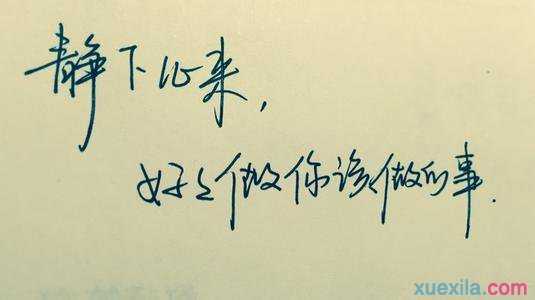 静下心来，
好好做你该做的事.
xuexila.com